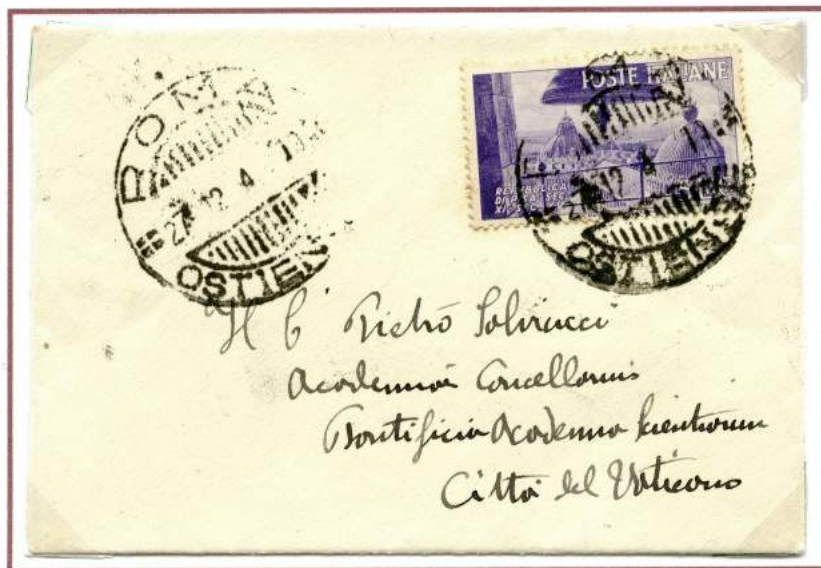 ROMA
27 12 4
OSTIEN
POSTE ITALIANE
REPUBBLICA
DI PISA SEC
27 12 4
OSTIENS
Pietro Salviucci
Academiae Cancellarius
Pontificia Academia Scientiarum
Città del Vaticano